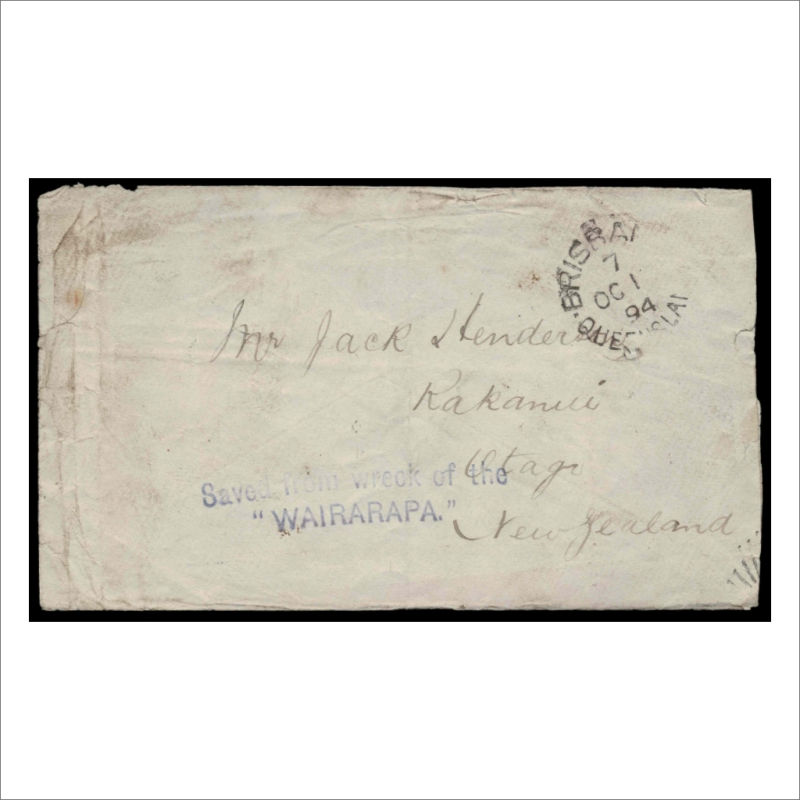 BRISBA
7
OC 1
94
QUEENSLAN
Mr Jack Henders
Kakanui
Otago
Saved from wreck of the
"WAIRARAPA."
New Zealand